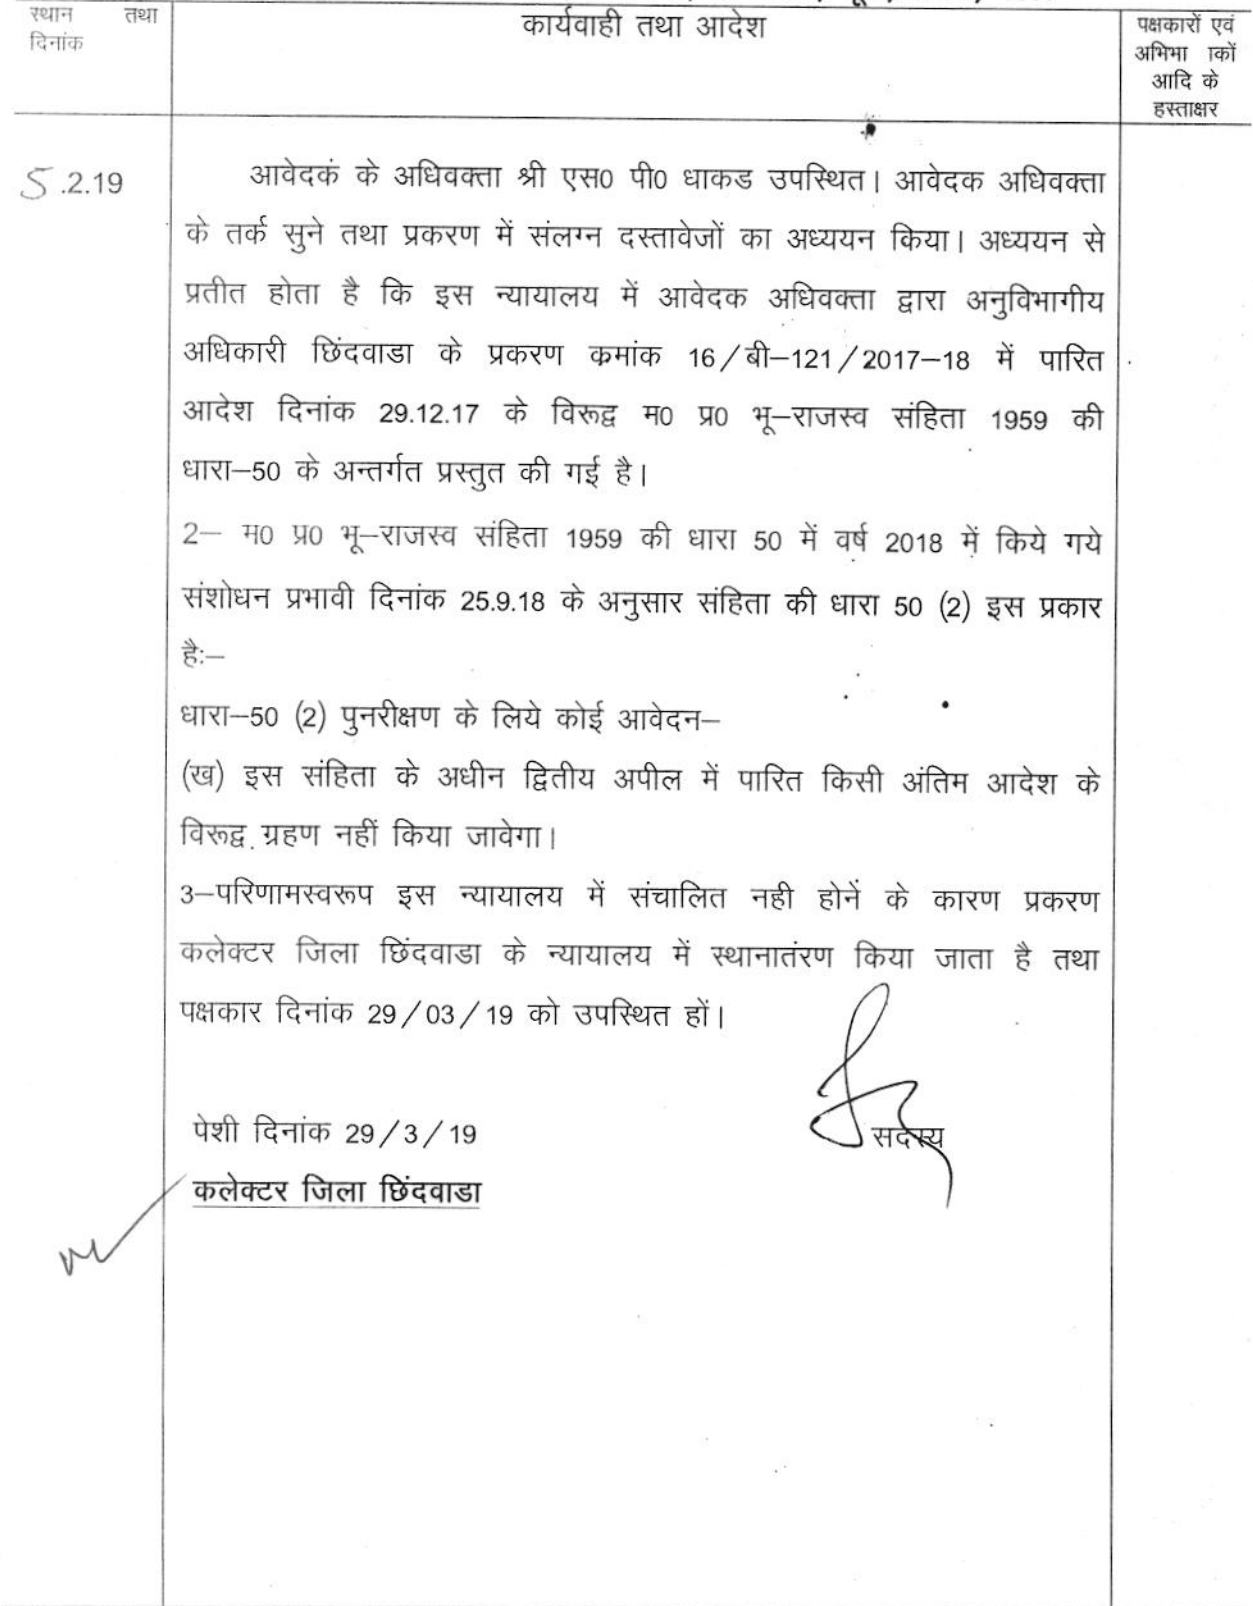 स्थान तथा
दिनांक
कार्यवाही तथा आदेश
पक्षकारों एवं
अभिभा कों
आदि के
हस्ताक्षर
5.2.19
आवेदकं के अधिवक्ता श्री एस0 पी0 धाकड उपस्थित। आवेदक अधिवक्ता
के तर्क सुने तथा प्रकरण में संलग्न दस्तावेजों का अध्ययन किया। अध्ययन से
प्रतीत होता है कि इस न्यायालय में आवेदक अधिवक्ता द्वारा अनुविभागीय
अधिकारी छिंदवाडा के प्रकरण क्रमांक 16/बी–121/2017–18 में पारित
आदेश दिनांक 29.12.17 के विरूद्व म0 प्र0 भू–राजस्व संहिता 1959 की
धारा–50 के अन्तर्गत प्रस्तुत की गई है।
2– म0 प्र0 भू–राजस्व संहिता 1959 की धारा 50 में वर्ष 2018 में किये गये
संशोधन प्रभावी दिनांक 25.9.18 के अनुसार संहिता की धारा 50 (2) इस प्रकार
है:–
धारा–50 (2) पुनरीक्षण के लिये कोई आवेदन–
(ख) इस संहिता के अधीन द्वितीय अपील में पारित किसी अंतिम आदेश के
विरूद्व ग्रहण नहीं किया जावेगा।
3–परिणामस्वरूप इस न्यायालय में संचालित नही होनें के कारण प्रकरण
कलेक्टर जिला छिंदवाडा के न्यायालय में स्थानातंरण किया जाता है तथा
पक्षकार दिनांक 29/03/19 को उपस्थित हों।
पेशी दिनांक 29/3/19
सदस्य
कलेक्टर जिला छिंदवाडा